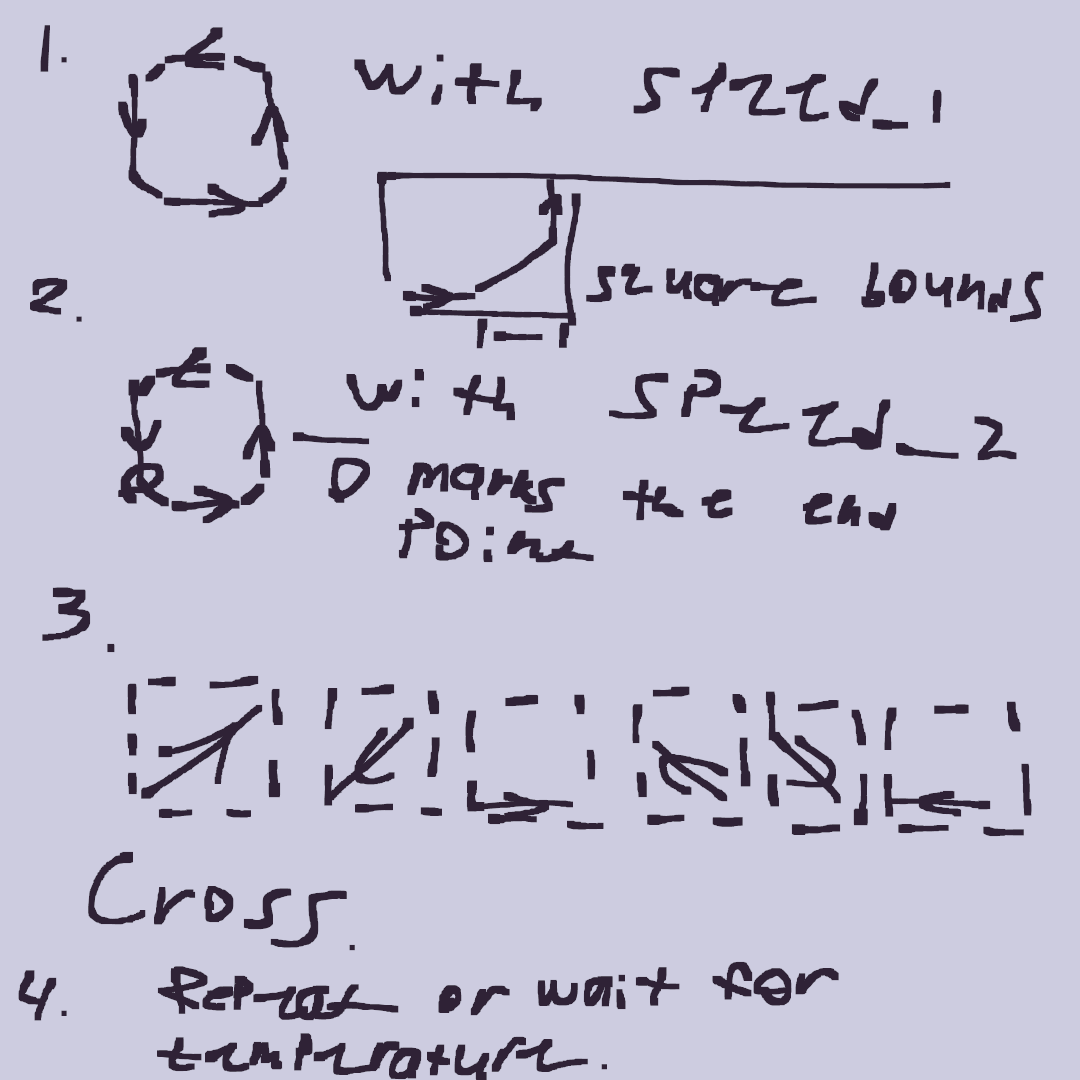 1. with speed_1
square bounds
2.
with speed_2
O marks the end
point
3.
Cross.
4. Repeat or wait for
temperature.